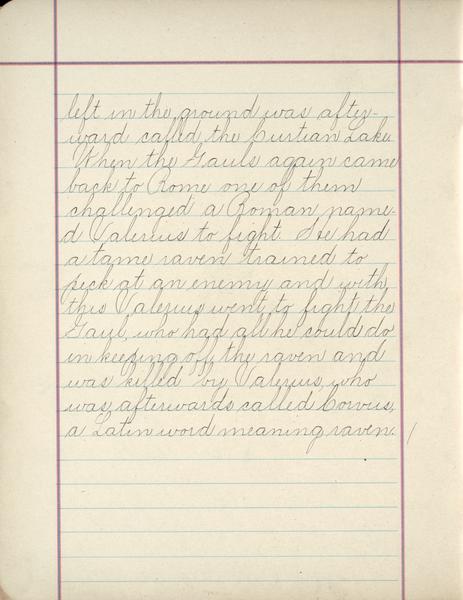 left in the ground was after-
ward called the Curtian Lake
When the Gauls again came
back to Rome one of them
challenged a Roman name-
d Valerius to fight. He had
a tame raven trained to
peck at an enemy and with
this Valerius went to fight the
Gaul, who had all he could do
in keeping off the raven and
was killed by Valerius, who
was afterwards called Corvus,
a Latin word meaning raven.